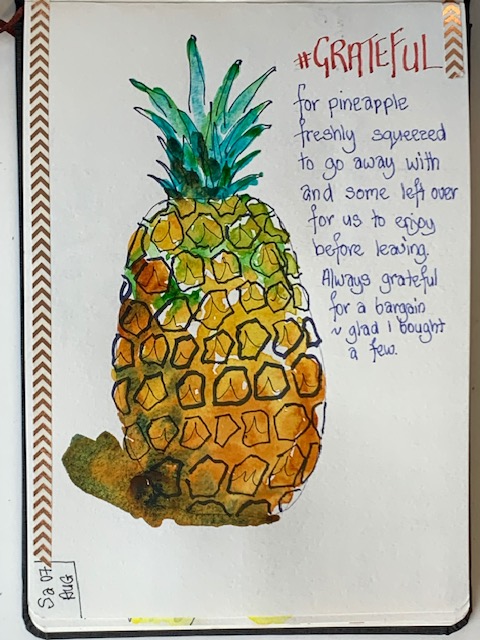 #GRATEFUL
for pineapple
freshly squeezed
to go away with
and some left over
for us to enjoy
before leaving.
Always grateful
for a bargain
~ glad I bought
a few.
Sa 07
AUG